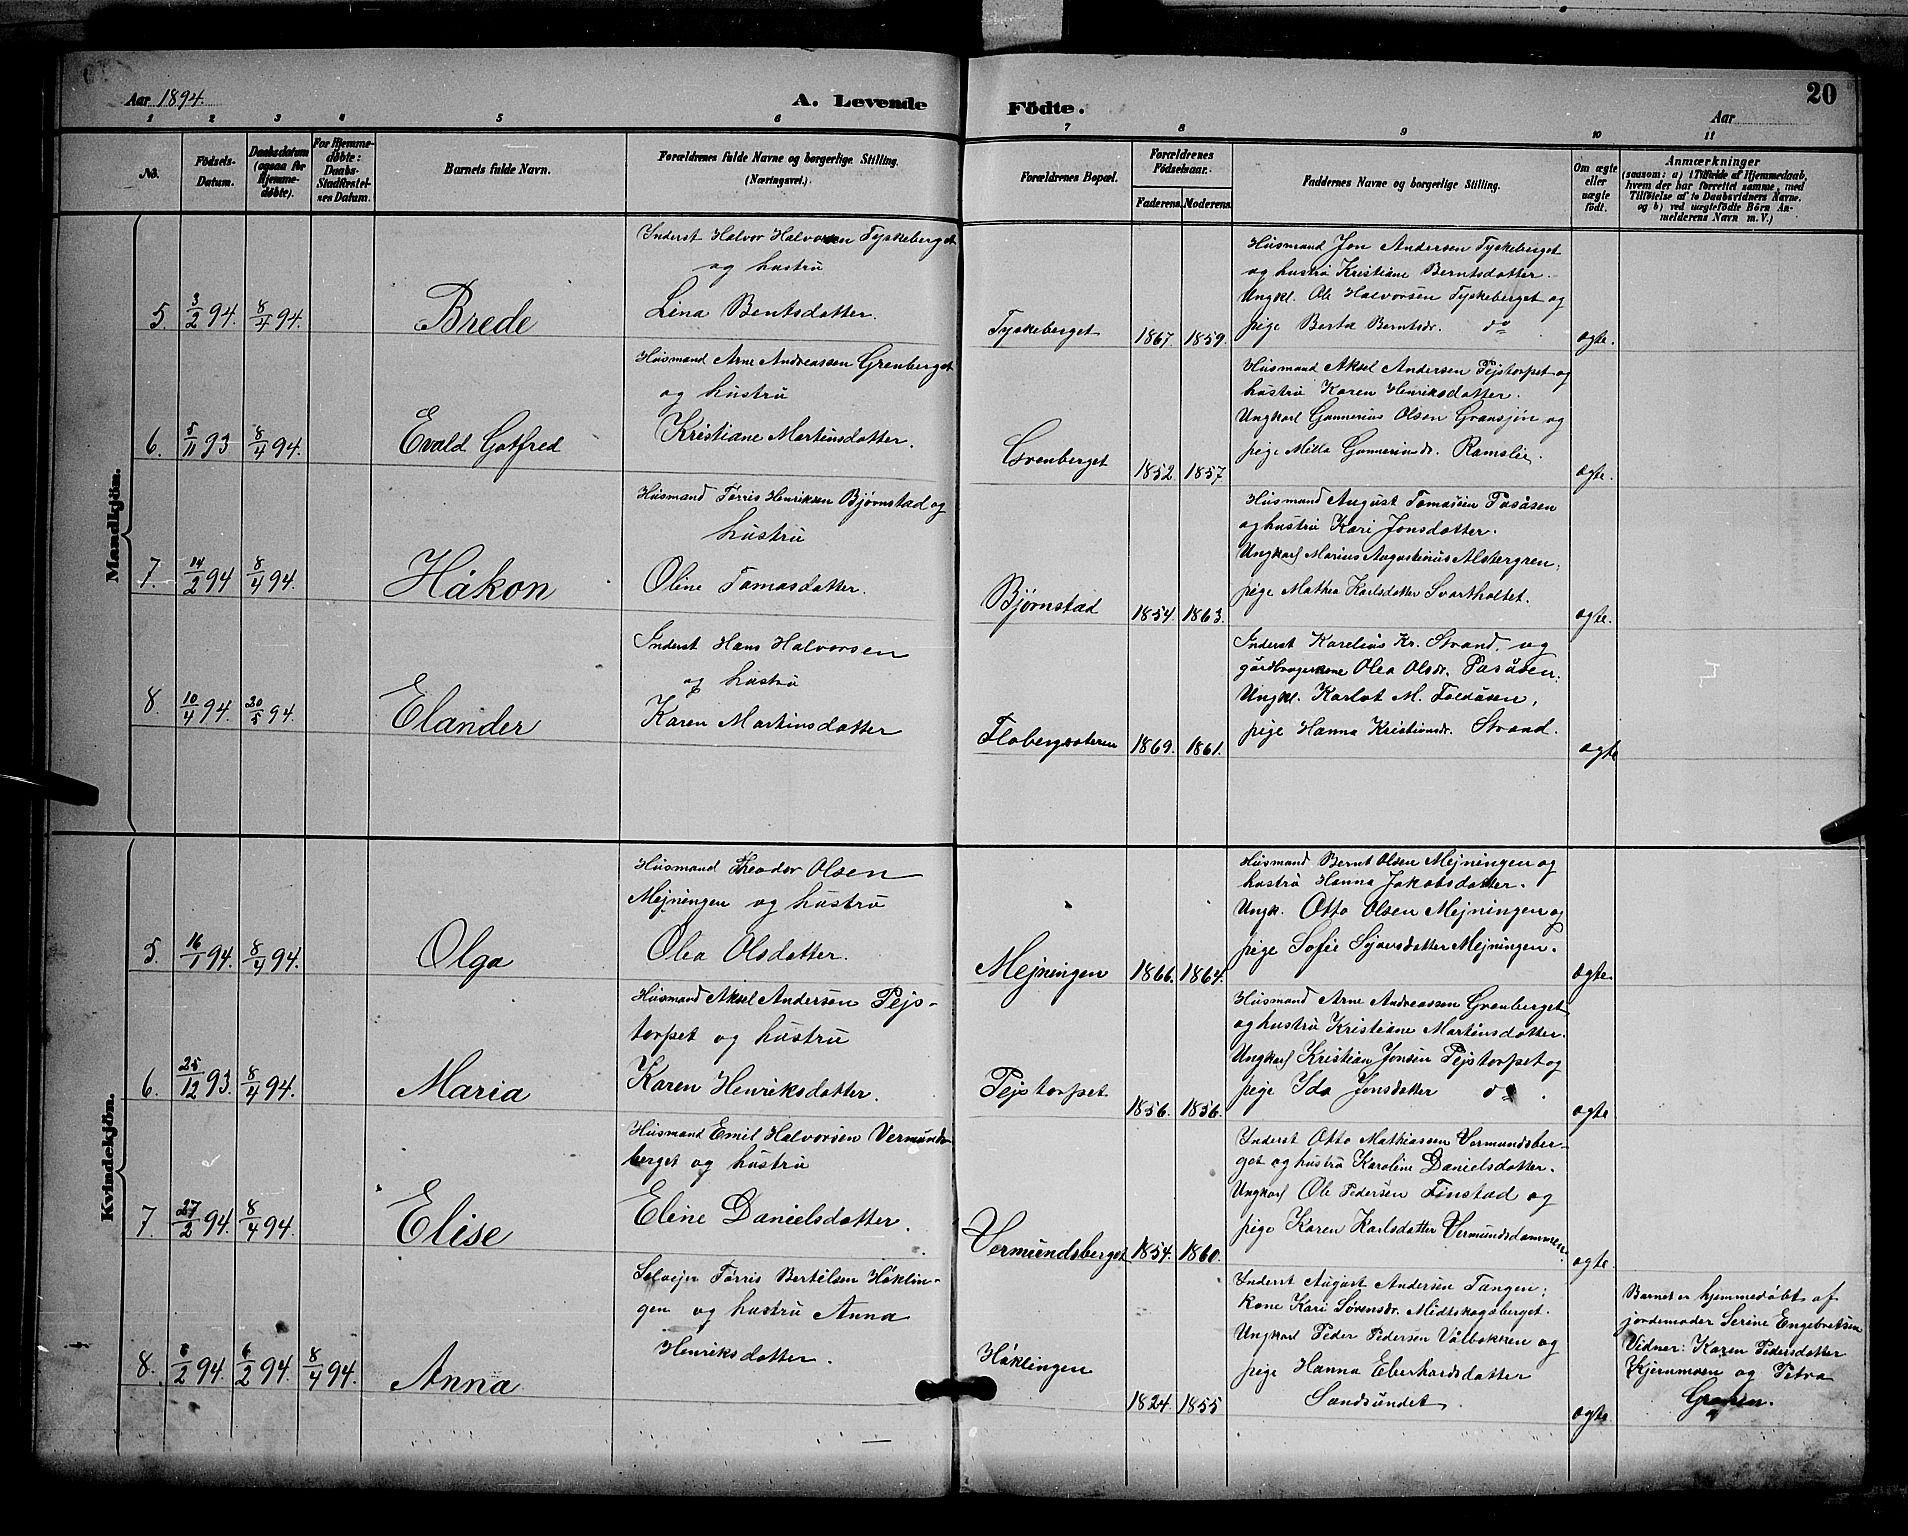 Aar 1894.
A. Levende Födte.
Aar
20
1 2 3 4 5 6 7 8 9 10 11
No.
Födsels-Datum.
Daabsdatum (ogsaa for Hjemmedøbte).
For Hjemmedøbte: Daabs-Stadfæstelses Datum.
Barnets fulde Navn.
Forældrenes fulde Navne og borgerlige Stilling. (Næringsvei.)
Forældrenes Bopæl.
Forældrenes Fødselsaar.
Faderens. Moderens.
Faddernes Navne og borgerlige Stilling.
Om ægte eller uægte födt.
Anmærkninger
(saasom: a) i Tilfælde af Hjemmedaab,
hvem der har forrettet samme, med
Tilföielse af to Daabsvidners Navne.
og b) ved uægtefödte Börn An-
melderens Navn m. V.)
Mandkjön.
Inderst Halvor Halvorsen Tyskeberget
og hustru
Lina Bentsdatter.
5. 3/2 94. 8/4 94. Brede
Tyskeberget 1867 1859.
Husmand Jon Andersen Tyskeberget
og hustru Kristiane Berntsdatter.
Ungkl. Ole Halvorsen Tyskeberget og
pige Berta Berntsdr. do
ægte.
Husmand Arne Andreassen Grenberget
og hustru
Kristiane Martinsdatter.
6. 5/11 93 8/4 94. Evald Gotfred
Grenberget 1852 1857
Husmand Aksel Andersen Pejstorpet og
hustru Karen Henriksdatter.
Ungkarl Gunnerius Olsen Gransjøn og
pige Milla Gunneriusdr. Ramslie.
ægte.
Husmand Tørris Henriksen Bjørnstad og
hustru
Oline Tomasdatter.
7. 14/2 94 8/4 94. Håkon
Bjørnstad 1854 1863.
Husmand August Tomassen Pasåsen
og hustru Kari Jonsdatter.
Ungkarl Marius Augustinus Alsbergren,
pige Mathea Karlsdatter Svartholtet.
ægte.
Inderst Hans Halvorsen
og hustru
Karen Martinsdatter
8. 10/4 94. 20/5 94. Elander
Flobergsæteren 1869. 1861.
Inderst Karelius Kr. Strand, og
gårdbrugerkone Olea Olsdr. Pasåsen.
Ungkl. Karlot M. Foldåsen,
pige Hanna Kristiansdr. Strand.
ægte
Kvindekjön.
Husmand Theodor Olsen
Mejningen og hustru
Olea Olsdatter.
5. 16/1 94. 8/4 94. Olga
Mejningen 1866. 1864.
Husmand Bernt Olsen Mejningen og
hustru Hanna Jakobsdatter.
Ungk. Otto Olsen Mejningen og
pige Sofie Syversdatter Mejningen.
ægte.
Husmand Aksel Andersen Pejs-
torpet og hustru
Karen Henriksdatter.
6. 25/12 93. 8/4 94. Maria
Pejstorpet 1856. 1856.
Husmand Arne Andreassen Grenberget
og hustru Kristiane Martinsdatter.
Ungkarl Kristian Jonsen Pejstorpet og
pige Ida Jonsdatter do.
ægte
Husmand Emil Halvorsen Vermunds-
berget og hustru
Eline Danielsdatter.
7. 27/2 94. 8/4 94. Elise
Vermundsberget 1854. 1860.
Inderst Otto Mathiassen Vermundsber-
get og hustru Karoline Danielsdatter.
Ungkarl Ole Pedersen Finstad og
pige Karen Karlsdatter Vermundsdammen
ægte.
Selvejer Tørris Bertelsen Høklin-
gen og hustru Anna
Henriksdatter.
8. 6/2 94. 6/2 94. 8/4 94. Anna
Høklingen 1824. 1855
Inderst August Andersen Tangen;
kone Kari Sørensdr. Midtskogsberget.
Ungkarl Peder Pedersen Vålbekken og
pige Hanna Eberhardsdatter
Sandsundet.
ægte
Barnet er hjemmedøbt af
jordemoder Serine Engebretsen
Vidner: Karen Pedersdatter
Kjernmoen og Petra